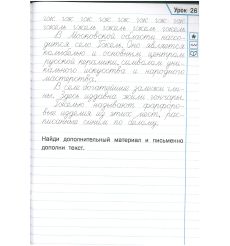 Урок 26
гж гж гж гж гж гж гж
гжель гжель гжель гжель гжель
В Московской области нахо-
дится село Гжель. Оно является
колыбелью и основным центром
русской керамики, символом уни-
кального искусства и народного
мастерства.
В селе богатейшие залежи гли-
ны. Здесь издавна жили гончары.
Гжелью называют фарфоро-
вые изделия из этих мест, рас-
писанные синим по белому.
Найди дополнительный материал и письменно
дополни текст.